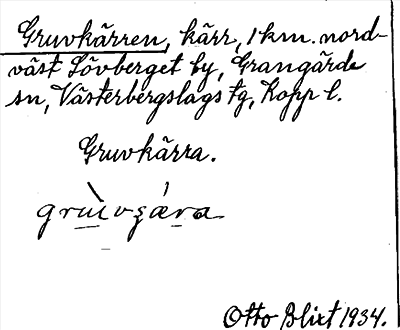 Gruvkärren, kärr, 1 km. nord-
väst Lövberget by, Grangärde
sn, Västerbergslags tg, Kopp l.
Gruvkärra.
Otto Blixt 1934.